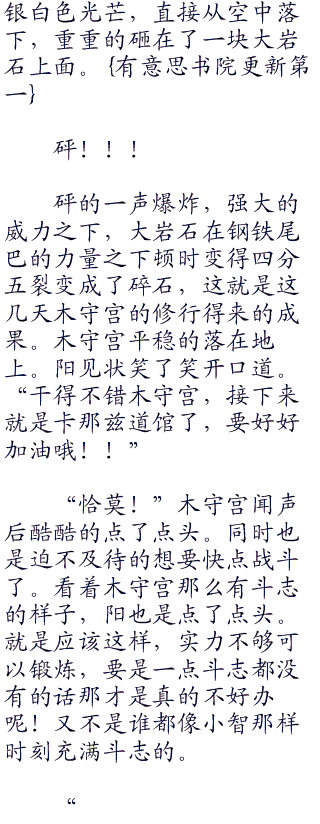 银白色光芒，直接从空中落
下，重重的砸在了一块大岩
石上面。{有意思书院更新第
一}
砰！！！
砰的一声爆炸，强大的
威力之下，大岩石在钢铁尾
巴的力量之下顿时变得四分
五裂变成了碎石，这就是这
几天木守宫的修行得来的成
果。木守宫平稳的落在地
上。阳见状笑了笑开口道。
“干得不错木守宫，接下来
就是卡那兹道馆了，要好好
加油哦！！”
“恰莫！”木守宫闻声
后酷酷的点了点头。同时也
是迫不及待的想要快点战斗
了。看着木守宫那么有斗志
的样子，阳也是点了点头。
就是应该这样，实力不够可
以锻炼，要是一点斗志都没
有的话那才是真的不好办
呢！又不是谁都像小智那样
时刻充满斗志的。
“